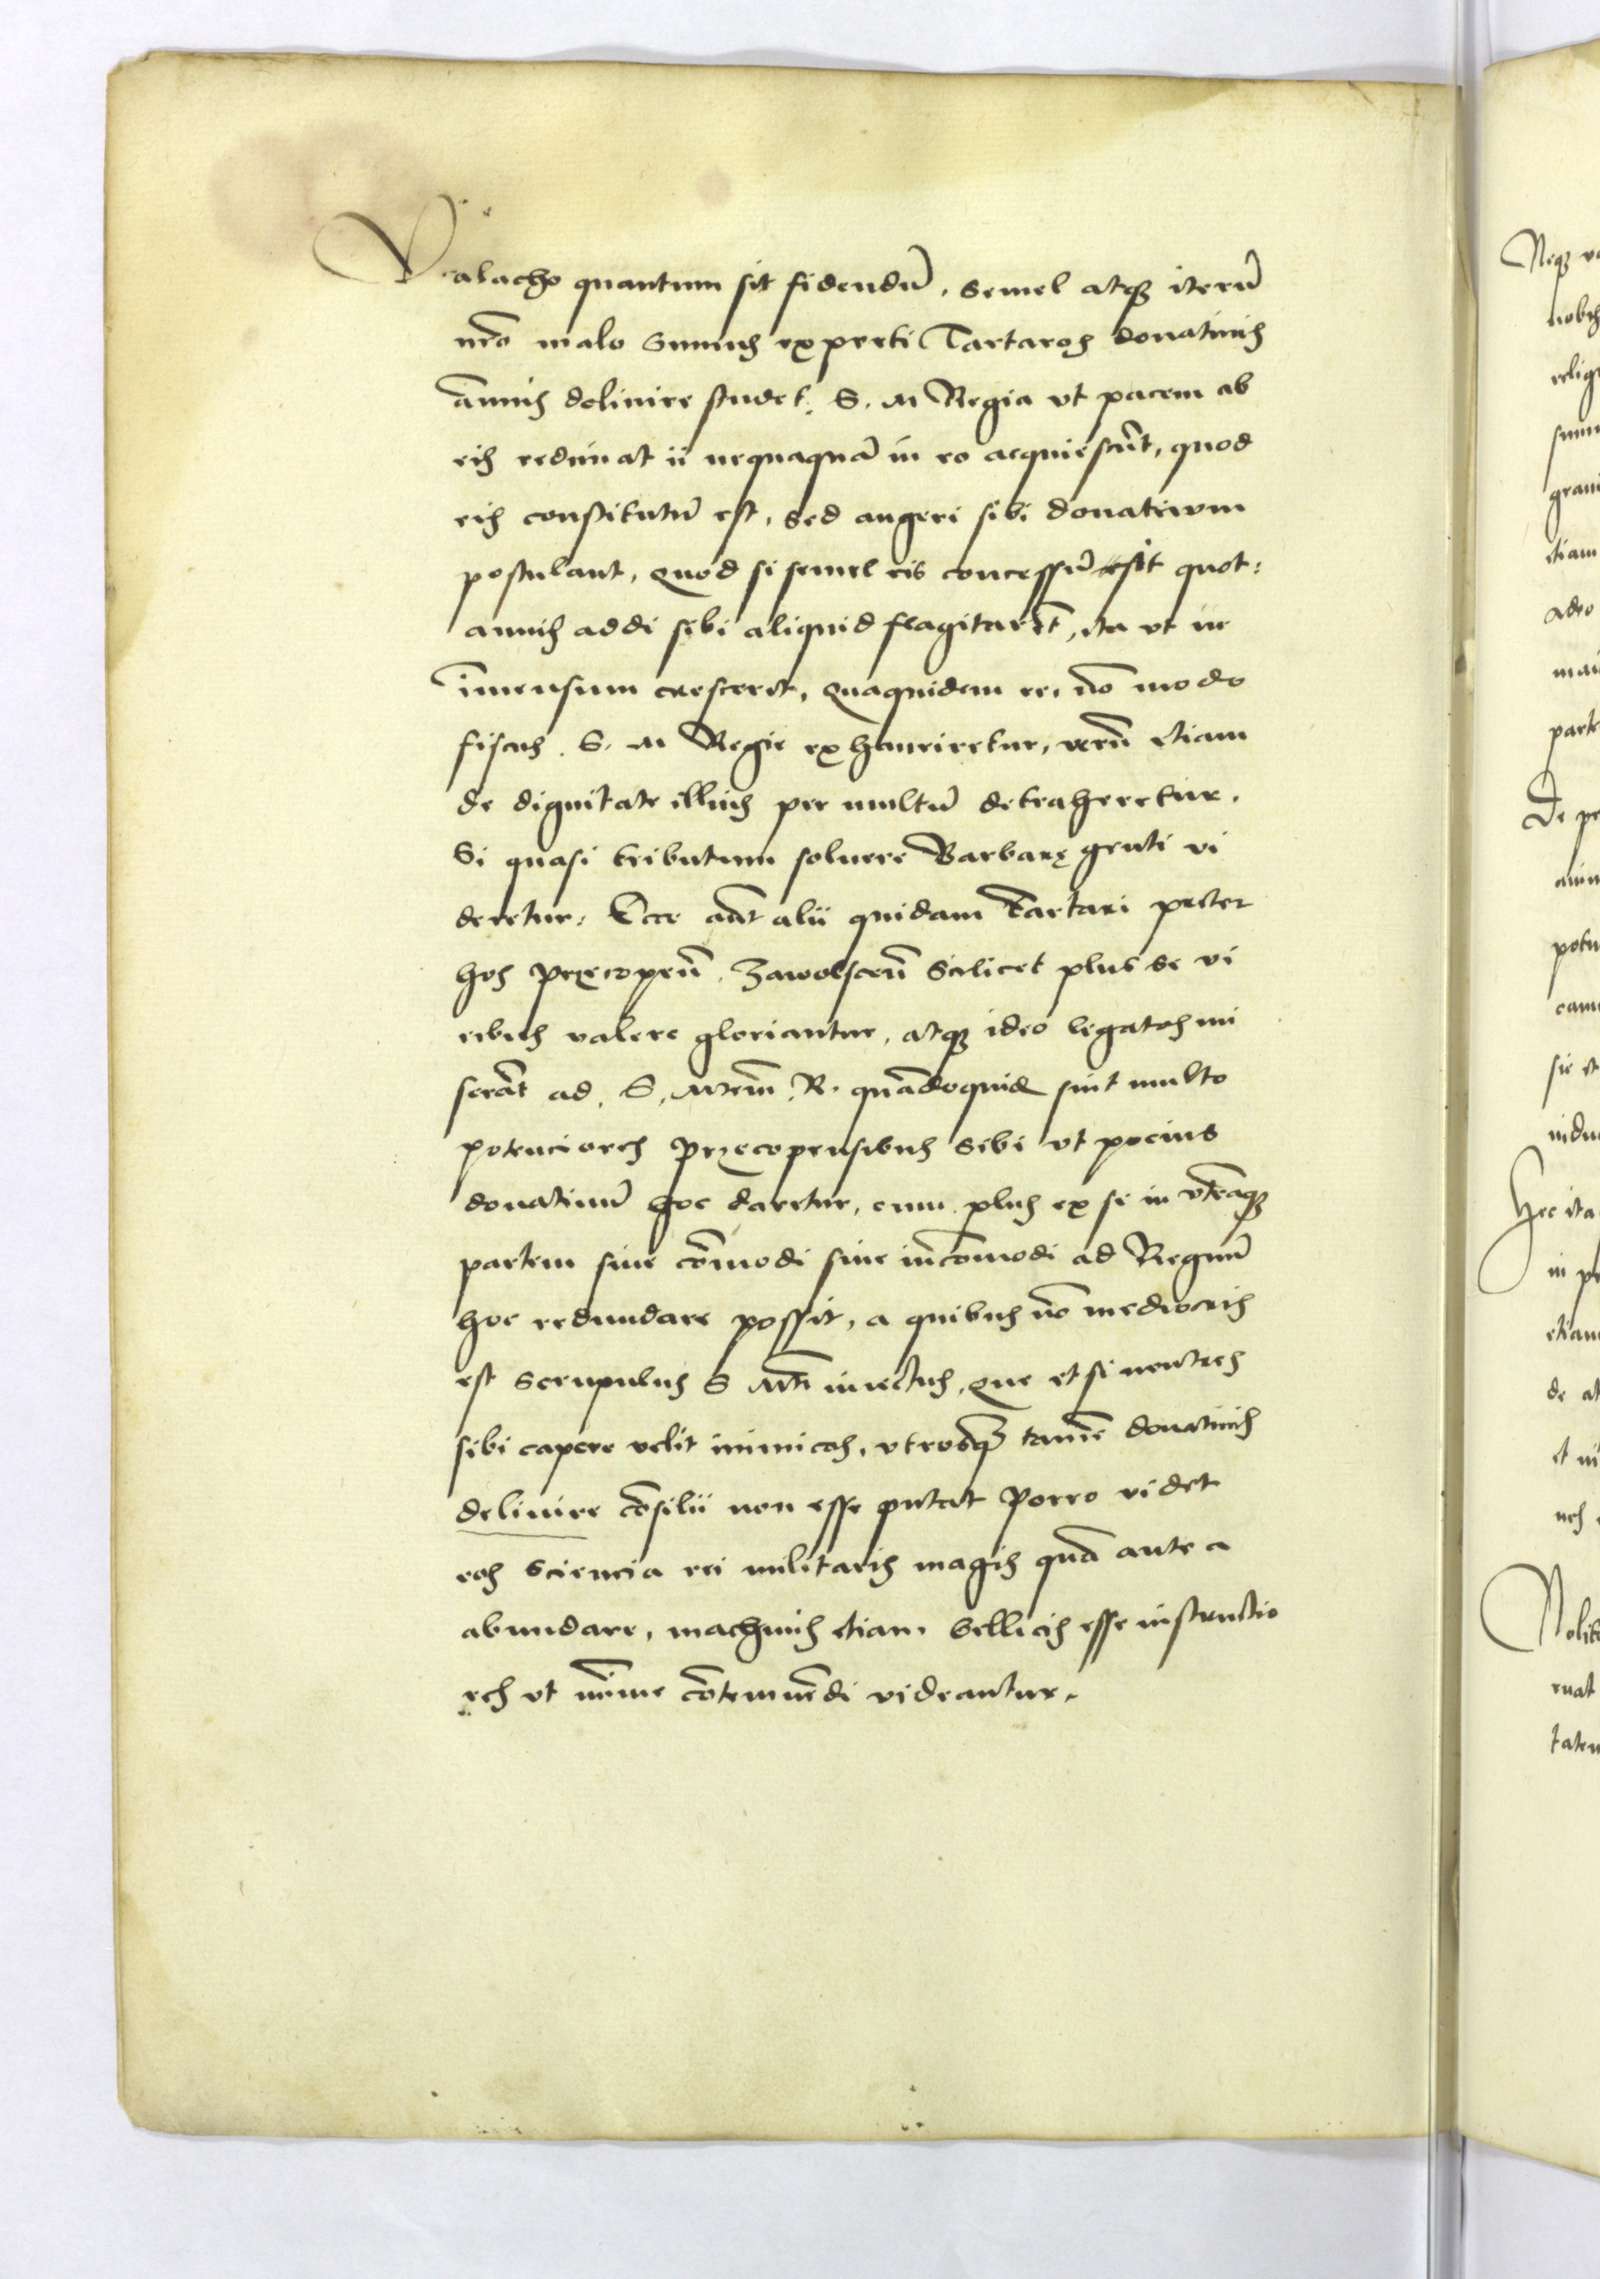 Valacho quantum sit fidendū, semel atq̃ iterū
nr̄o malo sumus experti Tartaros donatiuis
añuis delinire studet. S. M Regia vt pacem ab
eis redimat ii nequaquā in eo acquiescūt, quod
eis constitutū est, sed augeri sibi donatiuum
postulant, quod si semel eis concessū sit quot:
annis addi sibi aliquid flagitarēt, ita vt in
im̄ensum cresceret, quaquidem re, nō modo
fiscus. S. M Regie exhauriretur, verū etiam
de dignitate illius per multū detraheretur.
Si quasi tributum soluere Barbarę genti vi
deretur: Ecce aūt alii quidam Tartari preter
hos Pręcopeñ. Zawolsceñ Scilicet plus se vi
ribus valere gloriantur, atq̃ ideo legatos mi
serāt ad. S. Mtem̄. R. quādoquid sint multo
potenciores Pręcopensibus sibi vt pocius
donatiuū hoc daretur, cum plus ex se in vtrāq̃
partem siue cōmodi siue incōmodi ad Regnū
hoc redundare possit, a quibus nō mediocris
est scrupulus S Mti iniectus, que etsi neutros
sibi capere velit inimicos, vtrosq̃ tamē donatiuis
delinire cōsilii non esse putat Porro videt
eos sciencia rei militaris magis quā ante a
abundare, machinis etiam bellicis esse instructio
res vt mīime cōtemnēdi videantur.